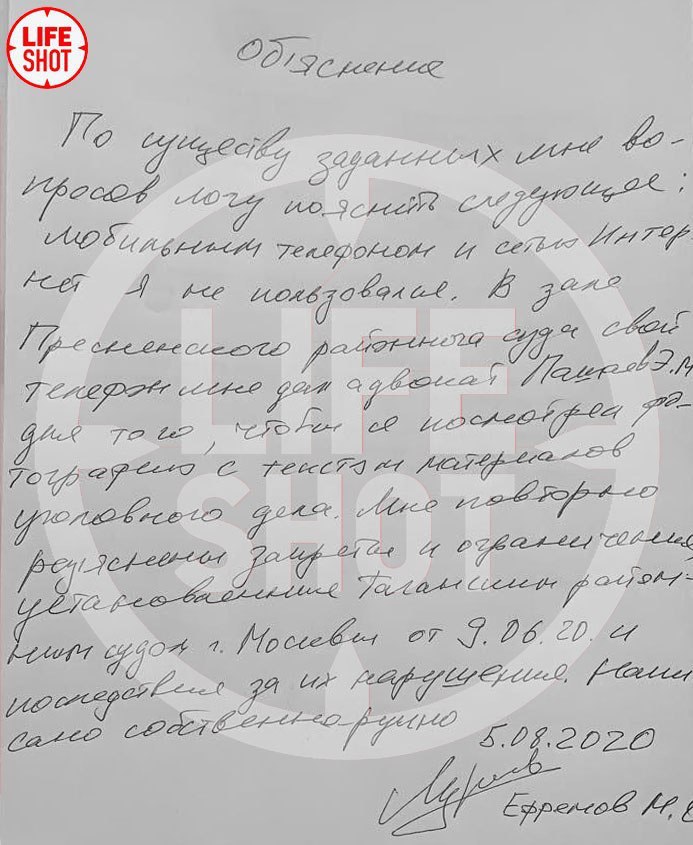 LIFE
SHOT
Объяснение
По существу заданных мне во-
просов могу пояснить следующее:
мобильным телефоном и сетью Интер
нет я не пользовался. В зале
Пресненского районного суда свой
телефон мне дал адвокат Пашаев Э.М
для того, чтобы я посмотрел фо-
тографию с текстом материалов
уголовного дела. Мне повторно
разъяснены запреты и ограничения,
установленные Таганским район-
ным судом г. Москвы от 9.06.20. и
последствия за их нарушения. Напи
сано собственно-ручно
5.08.2020
Ефремов М.
LIFE
SHOT